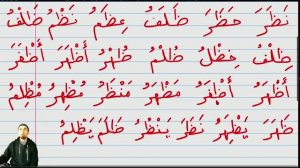 نَظَرَ حَظَرَ ظَلَفَ عِظَمُ نَظْمُ ظَلْفُ
ظِلْفُ حِظْلُ ظُلْمُ ظُهْرُ أَظْهَرَ أَظْفَرَ
أَظْهَرُ أَظْفِرُ مَظْهَرُ مَنْظَرُ مُظْهِرُ مُظْلِمُ
ظَهَرَ يَظْهَرُ نَظَرَ يَنْظُرُ ظَلَمَ يَظْلِمُ